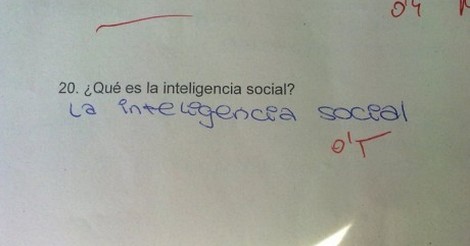 0'4
20. ¿Qué es la inteligencia social?
La inteligencia social
0'T